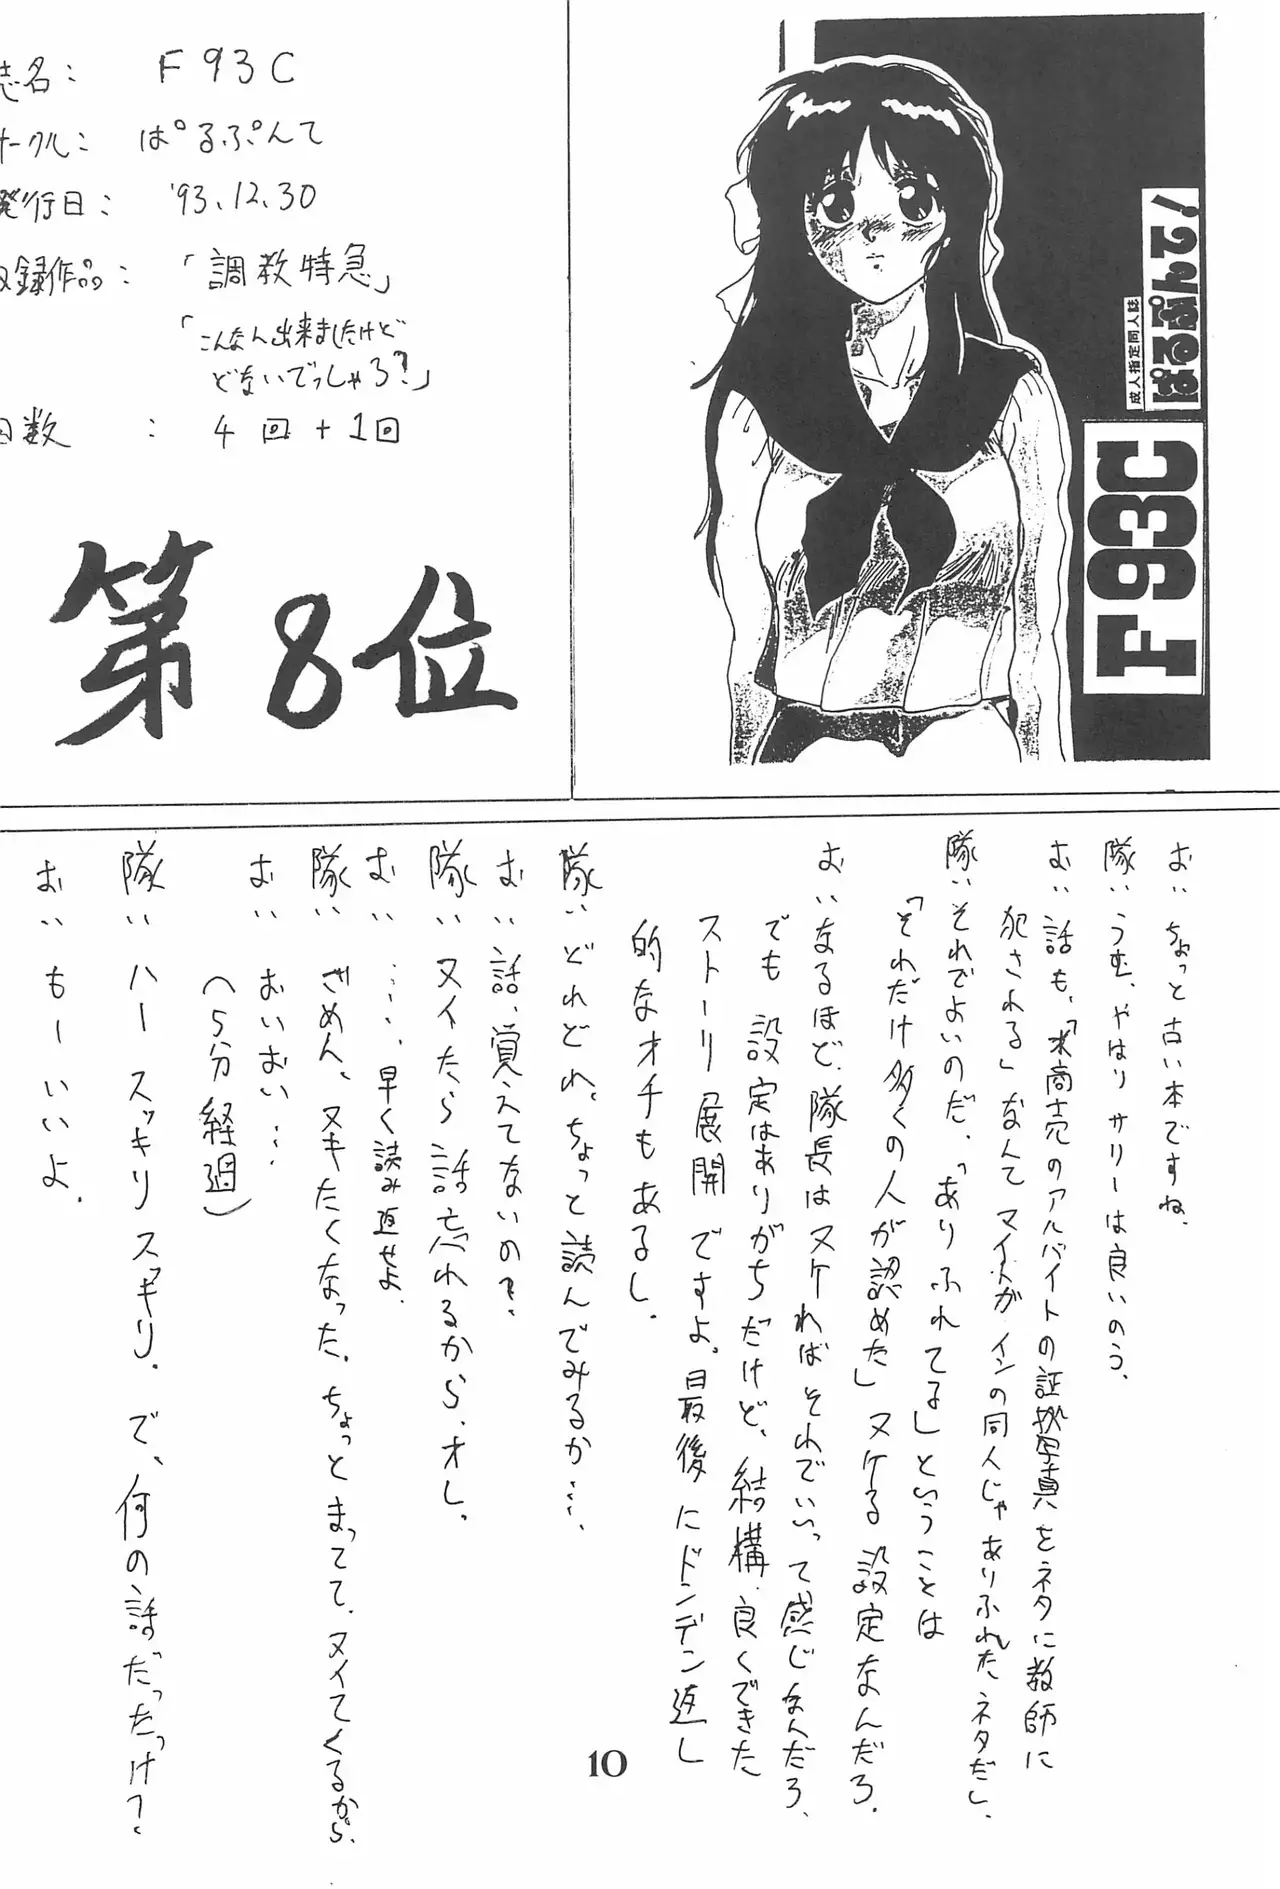 誌名: F93C
サークル: ぱるぷんて
発行日: '93.12.30
収録作品: 「調教特急」
「こんなん出来ましたけど
どないでっしゃろ?」
回数 : 4回+1回
第8位
成人指定同人誌
ぱるぷんて!
F93C
む:ちょっと古い本ですね.
隊:うむ、やはりサリーは良いのう.
む:話も、「水商売のアルバイトの証拠写真をネタに教師に
犯される」なんてマイトがインの同人じゃありふれたネタだし.
隊:それでよいのだ.「ありふれてる」ということは
「それだけ多くの人が認めた」ヌケる設定なんだろ.
む:なるほど、隊長はヌケればそれでいいって感じなんだろ、
でも設定はありがちだけど、結構良くできた
ストーリー展開ですよ.最後にドンデン返し
的なオチもあるし.
隊:どれどれ、ちょっと読んでみるか….
む:話、覚えてないの?
隊:ヌイたら話忘れるから、オレ.
む:…、早く読み返せよ.
隊:ごめん、ヌキたくなった.ちょっとまってて.ヌイてくるから.
む:おいおい…
(5分経過)
隊:ハースッキリスッキリ.で、何の話だったっけ?
む:もーいいよ.
10